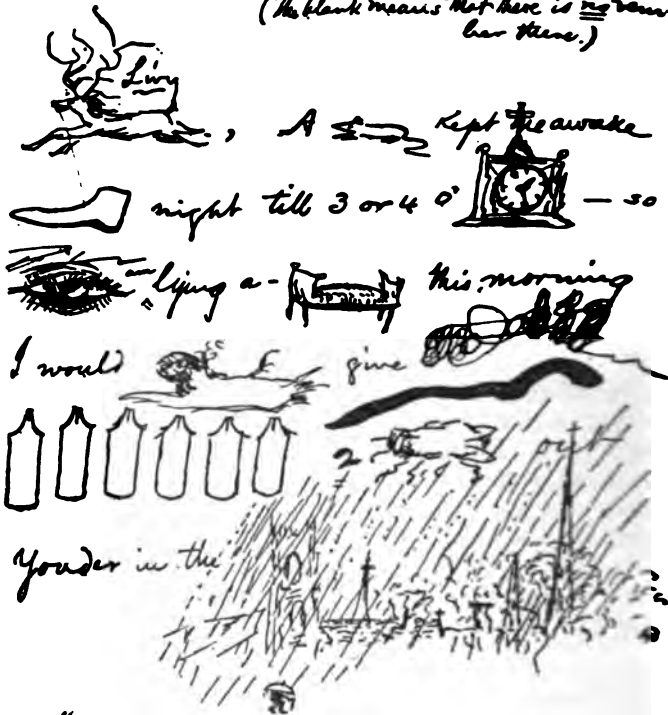 (the blank means that there is no rem
ber there.)
Livy
, A Kept me awake
night till 3 or 4 o' — so
am lying a- this morning
I would give
2 out
Yonder in the